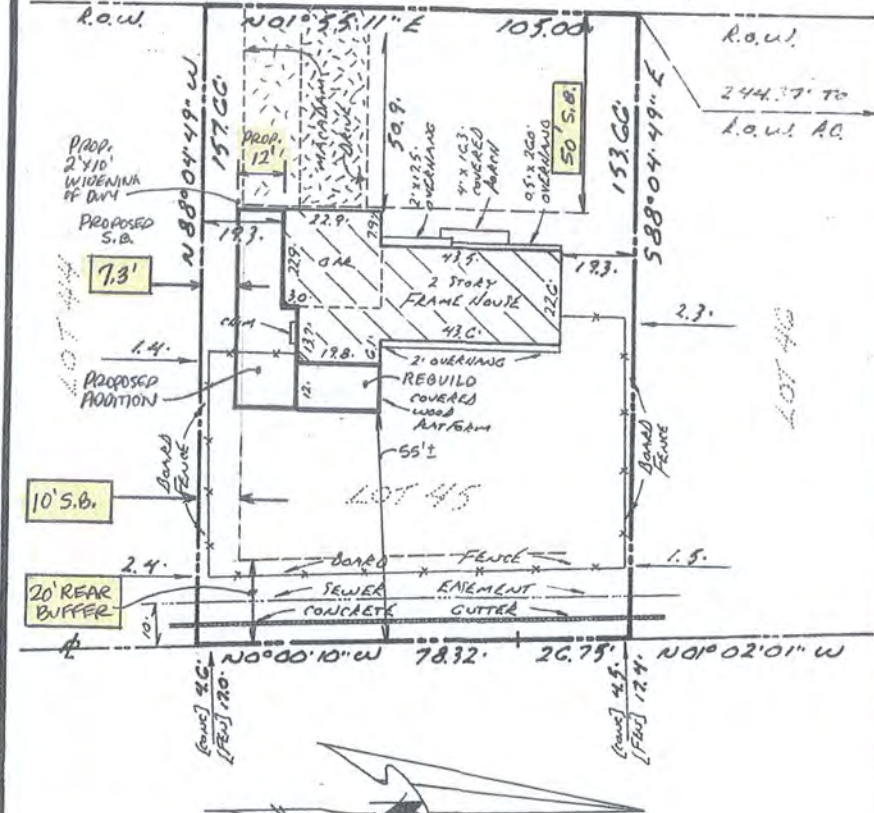 R.O.W.
N 01° 55' 11" E
105.00'
R.O.W.
R.O.W. P.C.
N 88° 04' 49" W
157.66'
PROP.
12'
MACADAM
DRIVE
50.9'
2' X 12.5'
OVERHANG
4' X 16.3'
COVERED
PORCH
0.5' X 26.0'
OVERHANG
50' S.B.
153.66'
S 88° 04' 49" E
PROP.
2'X10'
WIDENING
OF DWY
PROPOSED
S.B.
7.3'
19.3'
22.9'
7.9'
22.9'
GAR
3.0'
43.5'
2 STORY
FRAME HOUSE
22.6'
19.3'
2.3'
LOT 44
1.4'
CHIM
13.7'
19.8'
6.1'
43.6'
2' OVERHANG
PROPOSED
ADDITION
12'
REBUILD
COVERED
WOOD
PLATFORM
LOT 46
BOARD
FENCE
55'±
BOARD
FENCE
10' S.B.
LOT 45
2.4'
BOARD FENCE
1.5'
20' REAR
BUFFER
SEWER EASEMENT
10'
CONCRETE GUTTER
N 0° 00' 10" W
78.32'
26.75'
N 01° 02' 01" W
[CONC] 4.6'
[FEN] 12.0'
[CONC] 4.5'
[FEN] 12.4'